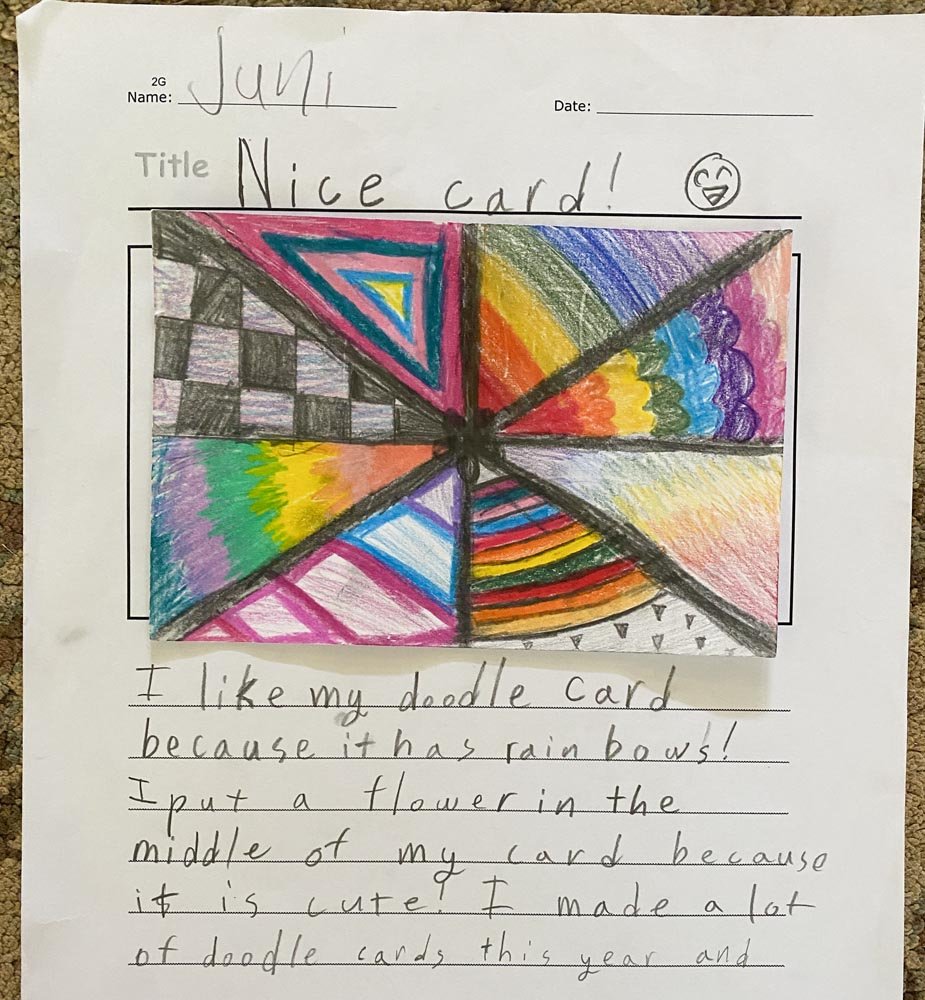 2G
Name: Juni Date:
Title Nice card!
I like my doodle card
because it has rainbows!
I put a flower in the
middle of my card because
it is cute! I made a lot
of doodle cards this year and